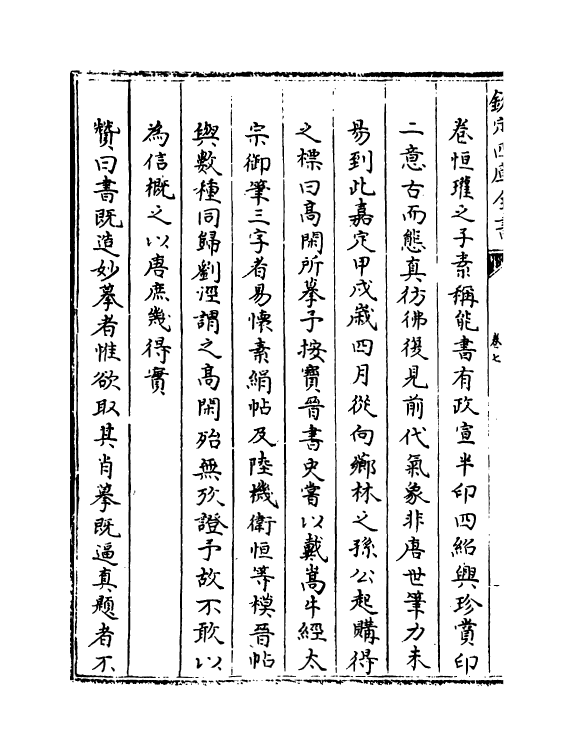 欽定四庫全書
卷七
卷恒瓘之子素稱能書有政宣半印四紹興珍賞印
二意古而態真彷彿復見前代氣象非唐世筆力未
易到此嘉定甲戌歲四月從向薌林之孫公起購得
之標曰高閑所摹予按寶晉書史嘗以戴嵩牛經太
宗御筆三字者易懷素絹帖及陸機衛恒等模晉帖
與數種同歸劉涇謂之高閑殆無攷證予故不敢以
為信概之以唐庶幾得實
贊曰書既造妙摹者惟欲取其肖摹既逼真題者不